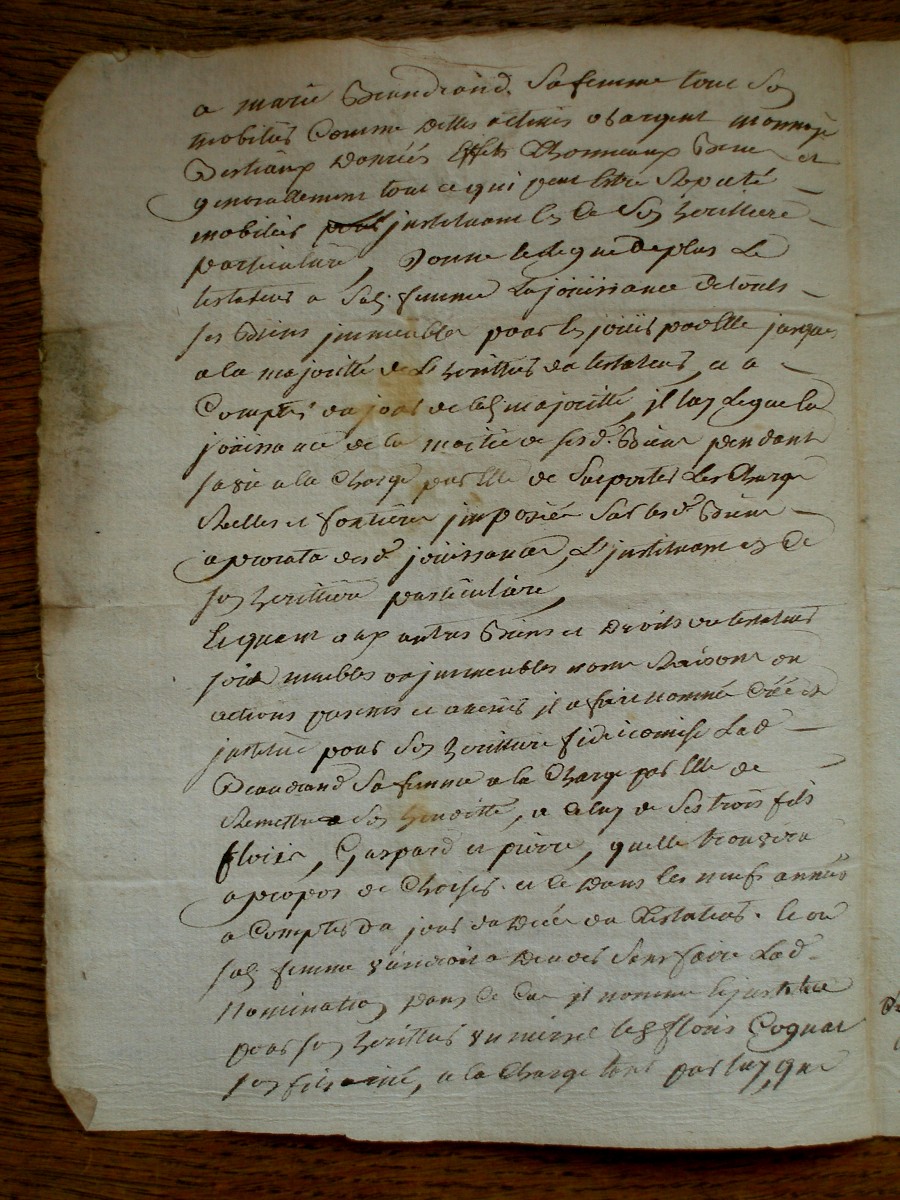 a marie Beaudrand. Sa femme tout son
mobilier Comme dettes actives or argent monnoyé
Bestiaux danrées Effets Chonneaux Bien et
generallement tout ce qui peut Estre Reputé
mobilier jnstituant la de Son heritiere
particuliere, Donne le legue de plus Le
testateur a Sad. femme La joüissance de touts
ses Biens jmmeubles pour les joüir par Elle jusques
a la majorité de L'heritier du testateur, et a
Compter du jour de lad. majorité, jl luy Legue la
joüissance de la moitié de sesd. Biens pendant
sa vie a la Charge par Elle de Suporter Les Charges
Reelles et fonciere jmposées Sur lesd. Biens
a prorata desd. joüissances, L'jnstituant en de
son heritiere particuliere,
Et quant aux autres Biens et Droits du testateur
soit meubles ou jmmeubles noms Raisons ou
actions presents et avenir jl a fait nommé Créé et
jnstitué pour Son heritiere fideicomise Lad.
Beaudrand Sa femme a la Charge par Elle de
Remettre Son hoirie, a Celuy de Ses trois fils
floris, Gaspard et pierre, quelle trouvera
a propos de Choisir et ce Dans les neufs années
a Compter du jour du Decés du Testateur. Et ou
sad. femme viendroit a Deceder Sans faire Lad.
Nomination, Dans ce Cas jl nomme Et jnstitue
pour son heritier universel led. floris Coquat
son fils ainé, a la Charge tant par luy, que